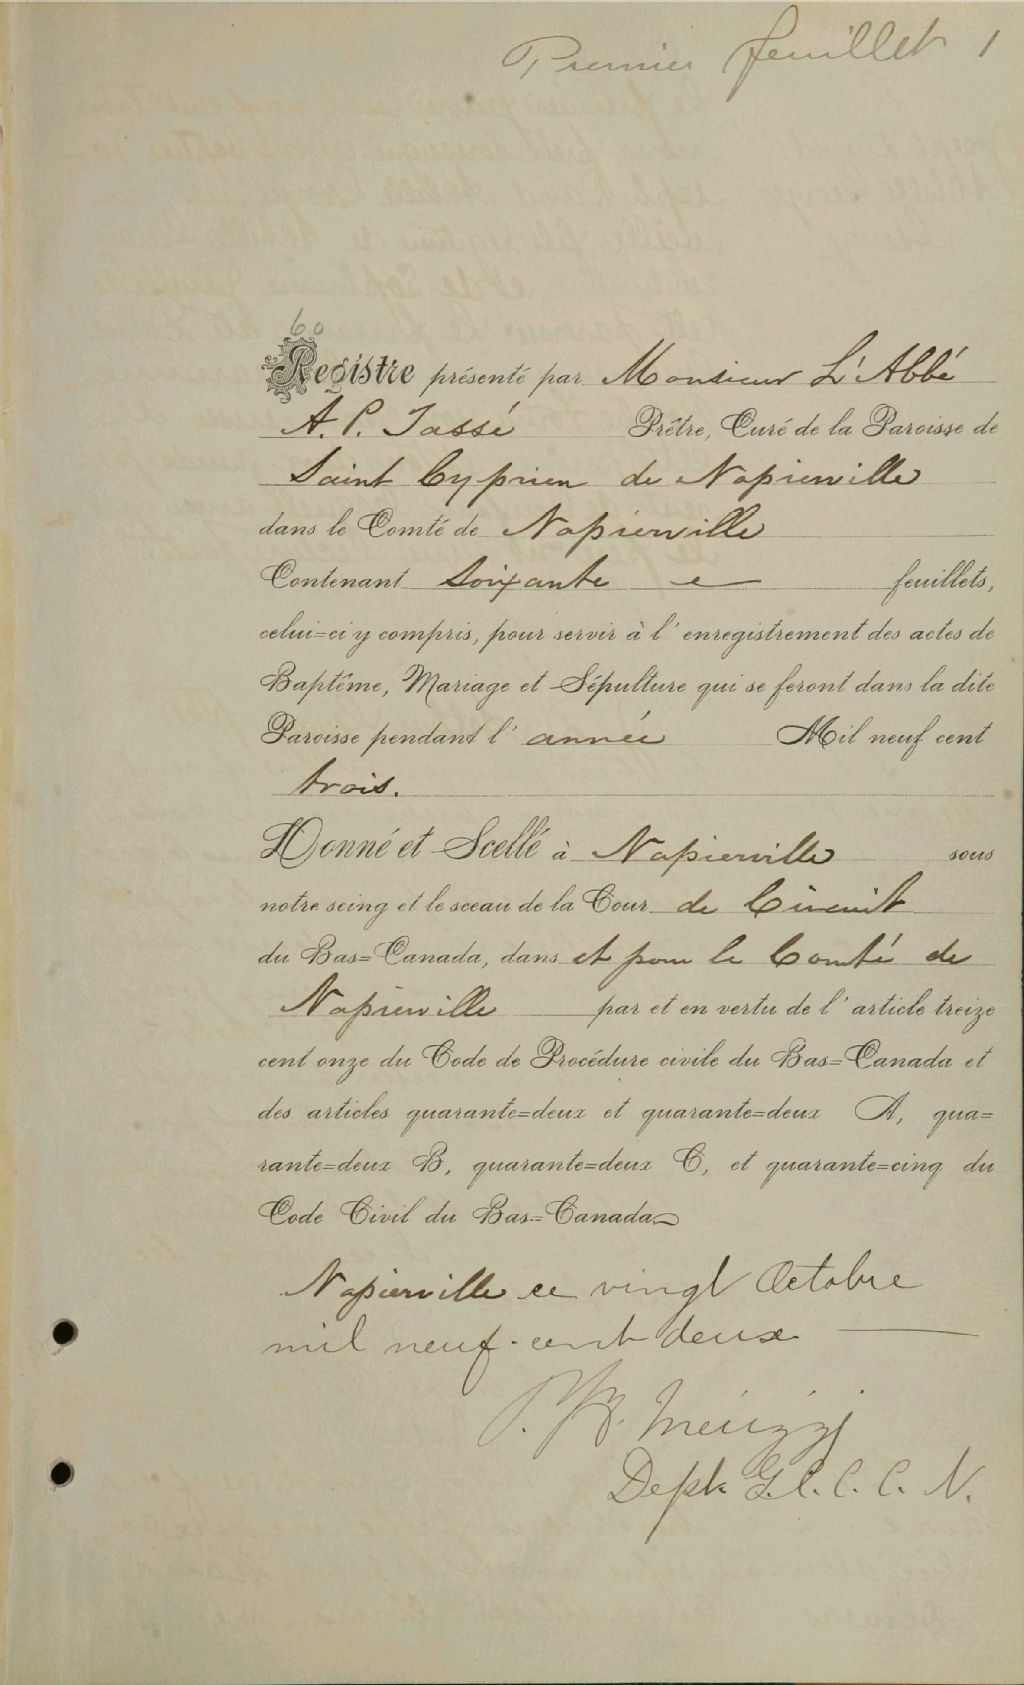 Premier feuillet 1
60
Registre présenté par Monsieur L'Abbé
A. P. Tassé Prêtre, Curé de la Paroisse de
Saint Cyprien de Napierville
dans le Comté de Napierville
Contenant soixante feuillets,
celui=ci y compris, pour servir à l'enregistrement des actes de
Baptême, Mariage et Sépulture qui se feront dans la dite
Paroisse pendant l'année Mil neuf cent
trois.
Donné et Scellé à Napierville sous
notre seing et le sceau de la Cour de Circuit
du Bas=Canada, dans et pour le Comté de
Napierville par et en vertu de l'article treize
cent onze du Code de Procédure civile du Bas=Canada et
des articles quarante=deux et quarante=deux A, qua=
rante=deux B, quarante=deux C, et quarante=cinq du
Code Civil du Bas=Canada
Napierville ce vingt Octobre
mil neuf-cent deux
Dept. G. C. C. C. N.